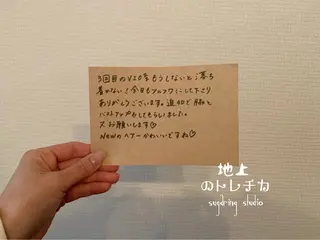 3回目のVIO今もうしないと落ち
着かない!今日もツルツルにして下さり
ありがとうございます。追加で脇と
バストアップもしてもらいました。
又お願いします♡
Newのヘアーかわいいですね♡
地上
のトレチカ
sugaring studio